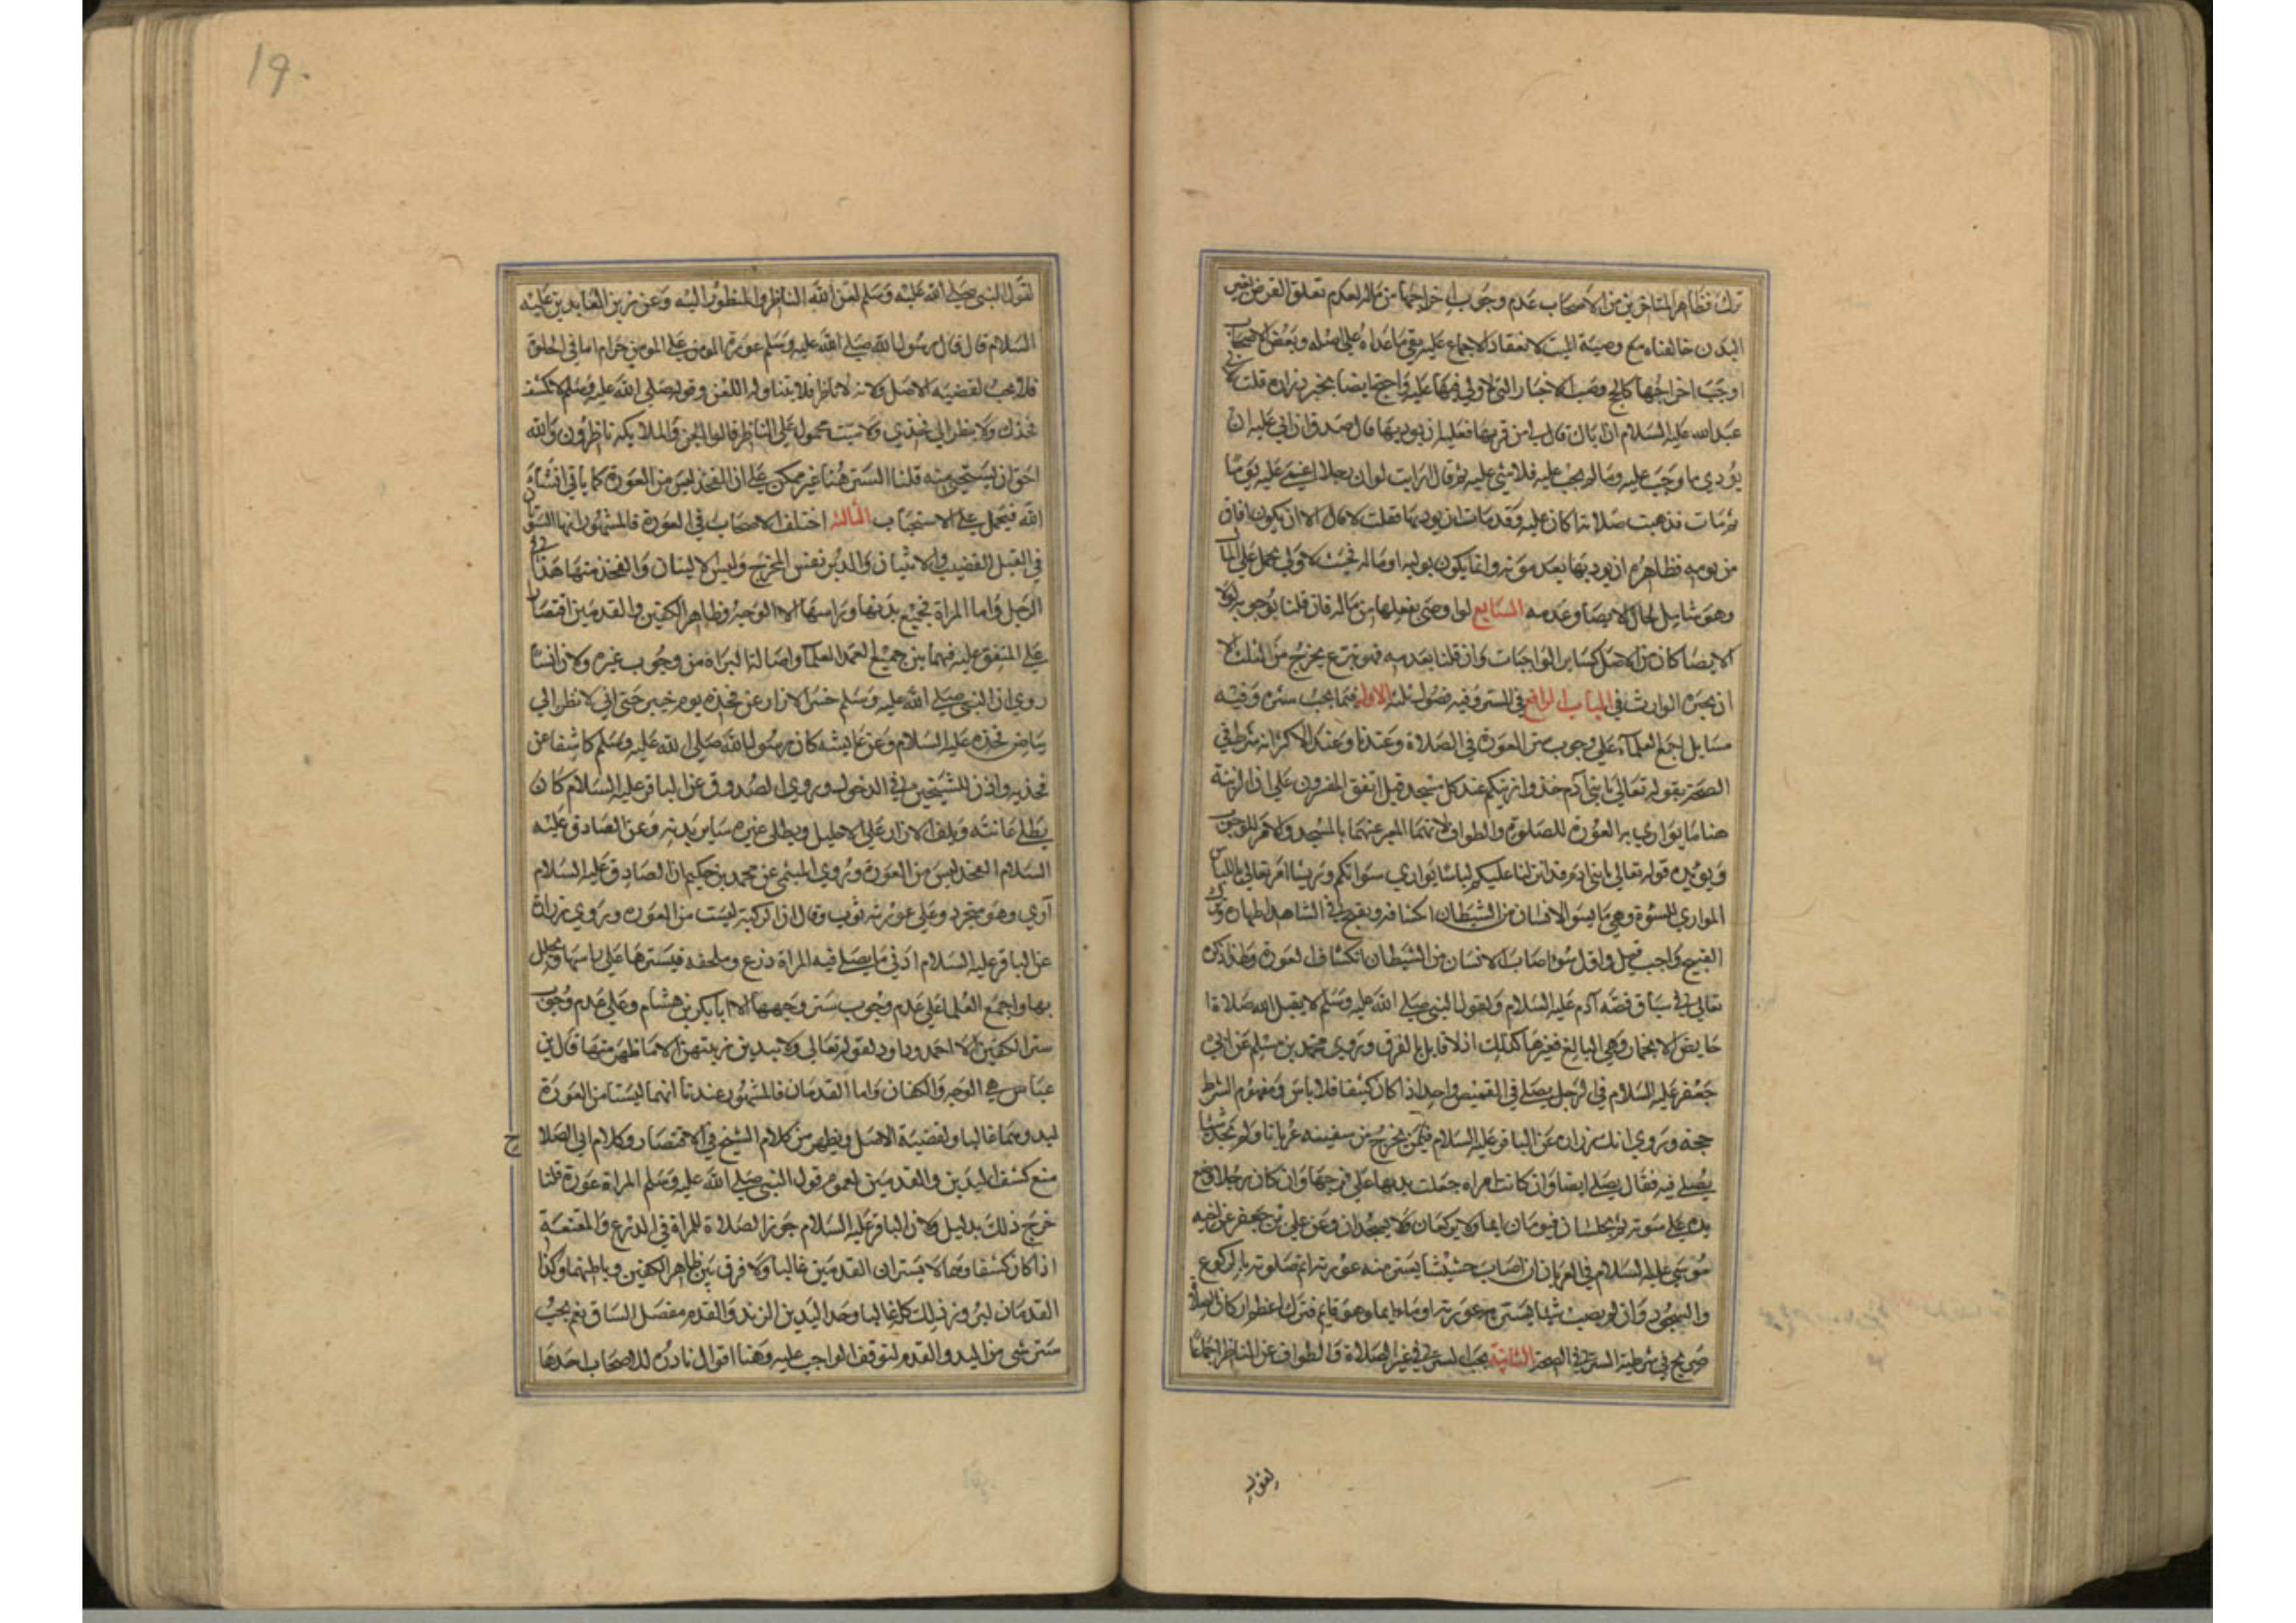 ترك فظاهر المتاخرين من الاصحاب عدم وجوب اخراجها من ماله لعدم تعلق الفرض بغير
البدن خالفناه مع وصية الميت لانعقاد الاجماع عليه بقي ما عداه على اصله وبعض الاصحاب
اوجب اخراجها كالحج وصب الاخبار التي لا ولي فيها عليه واحتج ايضا بخبر زرارة قلت لابي
عبد الله عليه السلام ان اباك قال لي من فر بها فعليه ان يوديها قال صدق ان ابي عليه ان
يؤدي ما وجب عليه وما لم يجب عليه فلا شي عليه ثم قال ارايت لو ان رجلا اغمي عليه يوما
ثم مات فذهبت صلاته اكان عليه وقد مات ان يوديها فقلت لا قال الا ان يكون افاق
من يومه فظاهره ان يوديها بعد موته وانما يكون بوليه او ماله فحيث لا ولي يحمل على المال
وهو شامل لحال الايصا وعدمه السابع لو اوصى بفعلها من ماله فان قلنا بوجوبه لولا
الايصا كان من الاصل كساير الواجبات وان قلنا بعدمه فهو تبرع يخرج من الثلث الا
ان يجيزه الوارث في الباب الرابع في الستر وفيه فصول ثلثه الاول فيما يجب ستره وفيه
مسايل اجمع العلماء على وجوب ستر العورة في الصلاة وعندنا وعند الاكثر انه شرط في
الصحة بقوله تعالى يا بني آدم خذوا زينتكم عند كل مسجد قيل اتفق المفسرون على ان الزينة
هنا ما يواري به العورة للصلوة والطواف لانهما المعبر عنهما بالمسجد والامر للوجوب
ويؤيده قوله تعالى يا بني ادم قد انزلنا عليكم لباسا يواري سواتكم وريشا امر تعالى باللباس
المواري للسوءة وهي ما يسوء الانسان من الشيطان انكشافه ويقبح في الشاهد اظهاره وترك
القبيح واجب قيل واول سوء اصاب الانسان من الشيطان انكشاف العورة ولهذا ذكره
تعالى في سياق قصة آدم عليه السلام ولقول النبي صلى الله عليه وسلم لا يقبل الله صلاة ا
حايض الا بخمار وهي البالغ فغيرها كذلك اذ لا قايل بالفرق وروى محمد بن مسلم عن ابي
جعفر عليه السلام في الرجل يصلي في القميص واحد اذا كان كثيفا فلا باس ومفهوم الشرط
حجة وروي انك زراره عن الباقر عليه السلام فيمن يخرج من سفينه عريانا ولم يجد شيا
يصلي فيه فقال يصلي ايضا وان كانت امراه جعلت يدها على فرجها وان كان رجلا وضع
يده على سوته ثم يجلسان فيوميان ايما ولا يركعان ولا يسجدان وعن علي بن جعفر عن اخيه
موسى عليه السلام في العريان ان اصاب حشيشا يستر منه عورته اتم صلوته بالركوع
والسجود وان لم يصب شيا يستر به عورته اومأ وهو قايم فترك اعظم اركان الصلاة
صريح في شرطية الستر في الصحة الثانية يجب الستر في غير الصلاة والطواف عن الناظر اجماعا
لقول
19.
لقول النبي صلى الله عليه وسلم لعن الله الناظر والمنظور اليه وعن زين العابدين عليه
السلام قال قال رسول الله صلى الله عليه وسلم عورة المومن على المومن حرام اما في الخلوة
فلا يجب لقضية الاصل ولانه لا ناظر فلا يتناوله اللعن وقوله صلى الله عليه وسلم لا تكشف
فخذك ولا ينظر الى فخذ حي ولا ميت محمول على الناظر قالوا الجن والملايكه ناظرون والله
احق ان يستحيى منه قلنا الستر هنا غير ممكن على ان الفخذ ليس من العورة كما ياتي ان شاء
الله فيحمل على الاستحباب الثالثة اختلف الاصحاب في العورة فالمشهور انها السوءتان
في القبل القضيب والانثيان والدبر نفس المخرج وليس الاليتان والفخذ منها هذا في
الرجل واما المراة فجميع بدنها وراسها الا الوجه وظاهر الكفين والقدمين اقتصارا
على المتفق عليه فيهما بين جميع العلماء واصالة البراة من وجوب غيره ولان انسا
روى ان النبي صلى الله عليه وسلم حسر الازار عن فخذه يوم خيبر حتى اني لانظر الى
بياض فخذه عليه السلام وعن عايشه كان رسول الله صلى الله عليه وسلم كاشفا عن
فخذيه واذن للشيخين في الدخول وروى الصدوق عن الباقر عليه السلام كان
يطلي عانته ويلف الازار على الاحليل ويطلي غيره ساير بدنه وعن الصادق عليه
السلام الفخذ ليس من العورة وروي الميثمي عن محمد بن حكيم ان الصادق عليه السلام
آوي وهو متجرد وعلى عورته ثوب وقال ان الركبة ليست من العورة وروى زرارة
عن الباقر عليه السلام ادنى ما يصلي فيه المراة درع وملحفه فيسترها على راسها وتجلل
بها واجمع العلما على عدم وجوب ستر وجهها الا ابا بكر بن هشام وعلى عدم وجوب
ستر الكفين الا احمد وداود لقوله تعالى ولا يبدين زينتهن الا ما ظهر منها قال ابن
عباس هي الوجه والكفان واما القدمان فالمشهور عندنا انهما ليستا من العورة
لبدوهما غالبا ولقضية الاصل ويظهر من كلام الشيخ في الاقتصار وكلام ابي الصلا
ح
منع كشف اليدين والقدمين لعموم قول النبي صلى الله عليه وسلم المراة عورة قلنا
خرج ذلك بدليل ولان الباقر عليه السلام جوز الصلاة للمراة في الدرع والمقنعة
اذا كان كثيفا وهما لا يستران القدمين غالبا ولا فرق بين ظاهر الكفين وباطنهما وكذا
القدمان لبروز ذلك كله غالبا وحد اليدين الزند والقدم مفصل الساق نعم يجب
ستر شي من اليد والقدم لتوقف الواجب عليه وهنا اقوال نادرة للاصحاب احدها